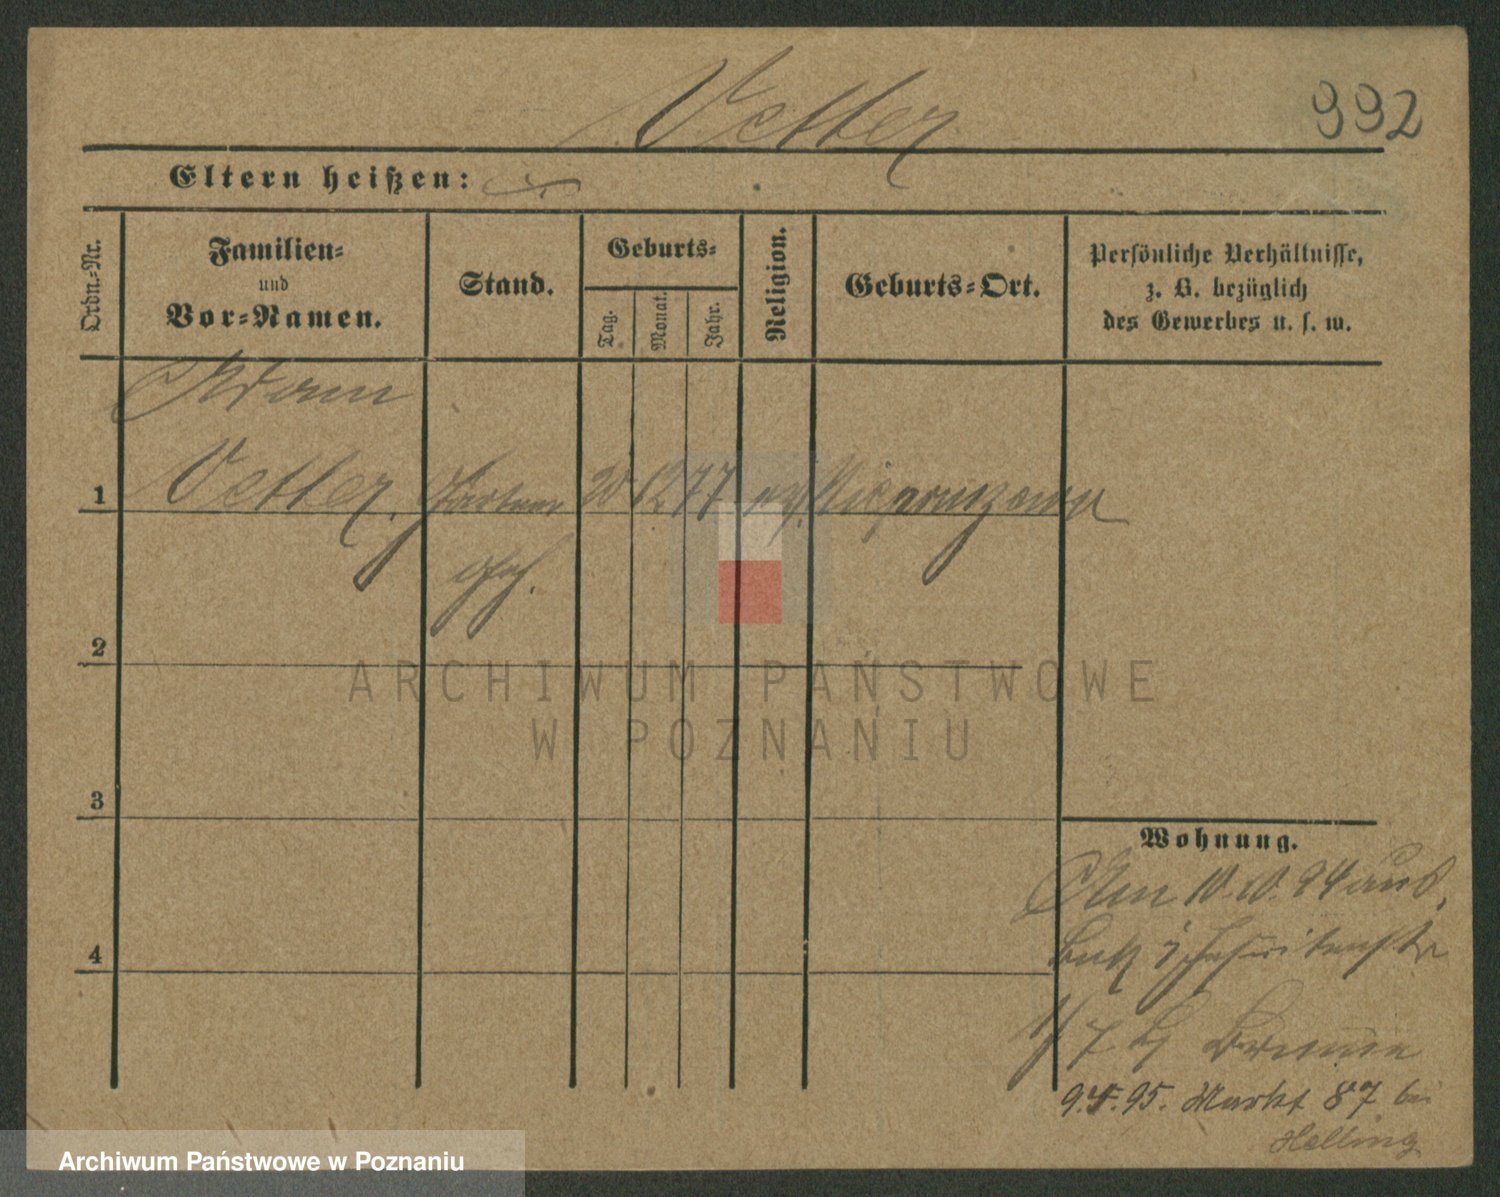 Vetter
992
Eltern heißen:
Ordn.-Nr.
Familien-
und
Vor-Namen.
Stand.
Geburts-
Tag.
Monat.
Jahr.
Religion.
Geburts-Ort.
Persönliche Verhältnisse,
z. B. bezüglich
des Gewerbes u. s. w.
Adam
1 Vetter. 20 12 77 ev.
2
3
4
Wohnung.
Am 10. 10. 94 aus
7 Bj
95. Markt 87 bei
Helling
ARCHIWUM PAŃSTWOWE
W POZNANIU
Archiwum Państwowe w Poznaniu